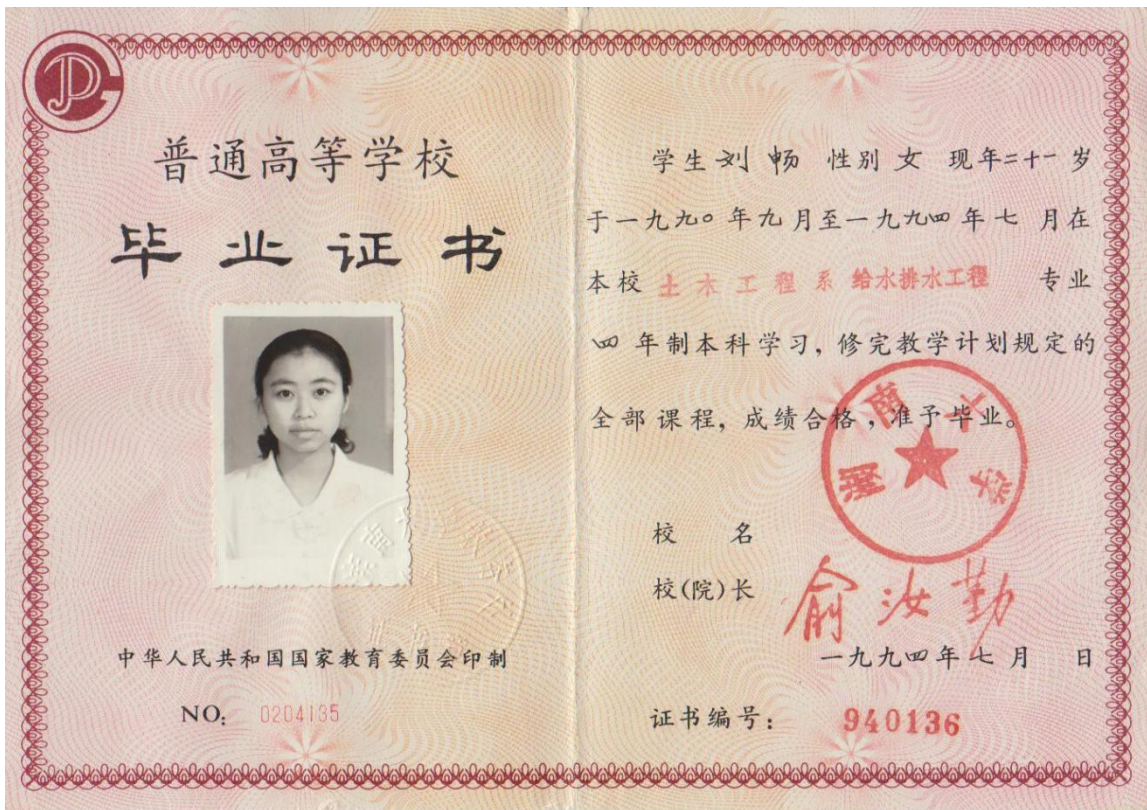 普通高等学校
毕业证书
中华人民共和国国家教育委员会印制
NO: 0204135
学生 刘畅 性别 女 现年二十一岁
于一九九〇年九月至一九九四年七月在
本校 土木工程系 给水排水工程 专业
四年制本科学习,修完教学计划规定的
全部课程,成绩合格,准予毕业。
湖南大学
校 名
校(院)长 俞汝勤
一九九四年七月 日
证书编号: 940136